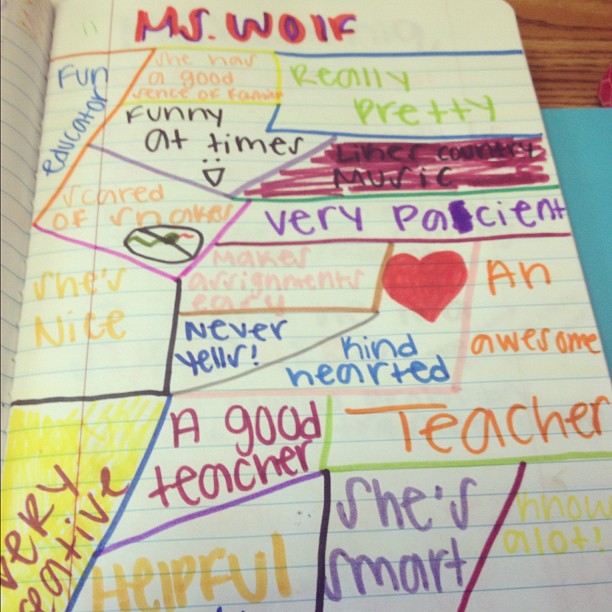 Ms. Wolf
Fun
educator
she has
a good
sence of
Really
Pretty
Funny
at times
Likes country
Music
scared
of snakes
very pacient
Makes
assignments
easy
She's
Nice
Never
Yells!
kind
hearted
An
awesome
Teacher
A good
teacher
very
eative
HElPFUl
She's
smart
know
alot!